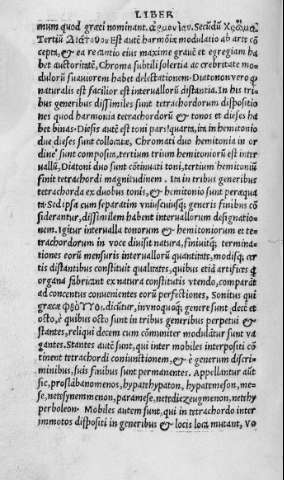 LIBER
mum quod græci nominant. ἁρμονίαν. Secūdū Χρῶμα.
Tertiū Διάτονον Est autē harmōiæ modulatio ab arte cō
cepta, & ea re cantio eius maxime grauē et egregiam ha
bet auctoritatē, Chroma subtili solertia ac crebritate mo
dulorū suauiorem habet delectationem. Diatonon vero ꝙ
naturalis est facilior est interuallorū distantia. In his tri
bus generibus dissimiles sunt tetrachordorum dispositio
nes quod harmonia tetrachordorū & tonos et dieses ha
bet binas. Diesis autē est toni pars quarta, ita in hemitonio
duæ dieses sunt collocatæ, Chromati duo hemitonia in or
dine sunt composita, tertium trium hemitoniorū est inter
uallū, Diatoni duo sunt cōtinuati toni, tertium hemitoniū
finit tetrachordi magnitudinem. Ita in tribus generibus
tetrachorda ex duobus tonis, & hemitonio sunt peræqua
ta. Sed ipsa cum separatim vniuscuiusq; generis finibus cō
siderantur, dissimilem habent interuallorum designatio
nem. Igitur interualla tonorum & hemitoniorum et te
trachordorum in voce diuisit natura, finiuitq; termina
tiones eorū mensuris interuallorū quantitate, modisq; cer
tis distantibus constituit qualitates, quibus etiā artifices ꝗ
organa fabricant ex natura constitutis vtendo, comparāt
ad concentus conuenientes eorū perfectiones, Sonitus qui
græce φθόγγοι, dicūtur, in vnoquoq; genere sunt, decē et
octo, è quibus octo sunt in tribus generibus perpetui &
stantes, reliqui decem cum cōmuniter modulātur sunt va
gantes. Stantes autē sunt, qui inter mobiles interpositi cō
tinent tetrachordi coniunctionem, & è generum discri=
minibus, suis finibus sunt permanentes. Appellantur autē
sic, proslābanomenos, hypatehypaton, hypatemeson, me=
se, netesynemmenon, paramese, netediezeugmenon, netehy
perboleon. Mobiles autem sunt, qui in tetrachordo inter
immotos dispositi in generibus & locis loca mutant, vo